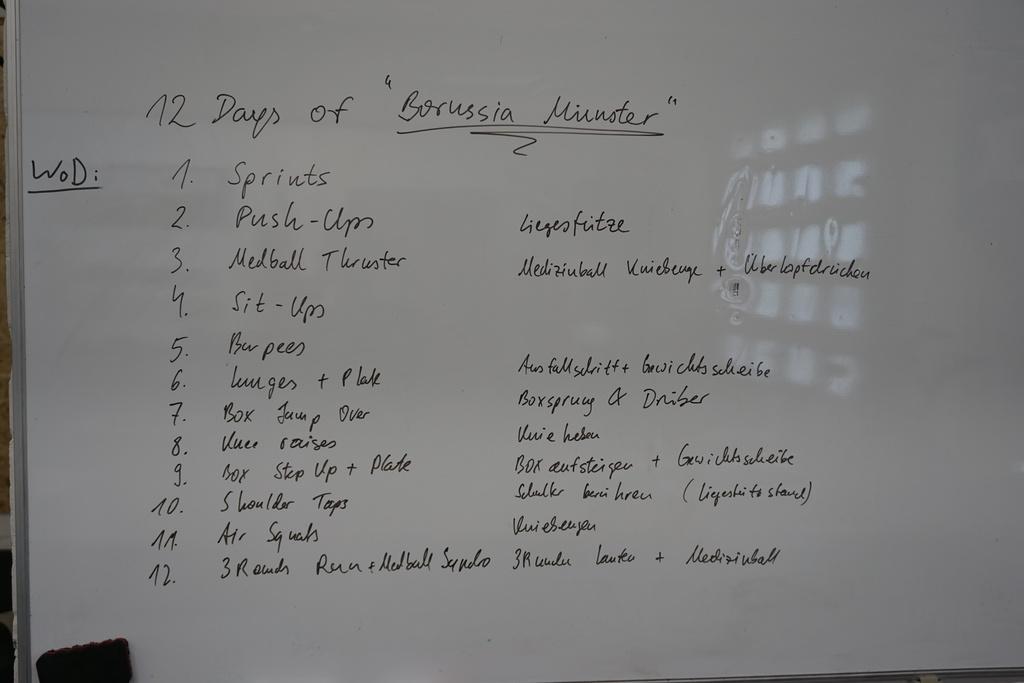 12 Days of "Borussia Münster"
WoD:
1. Sprints
2. Push-Ups Liegestütze
3. Medball Thruster Medizinball Kniebeuge + Überkopfdrücken
4. Sit-Ups
5. Burpees
6. Lunges + Plate Ausfallschritt + Gewichtsscheibe
7. Box Jump Over Boxsprung & Drüber
8. Knee raises Knie heben
9. Box Step Up + Plate Box aufsteigen + Gewichtsscheibe
10. Shoulder Taps Schulter berühren (Liegestützstand)
11. Air Squats Kniebeugen
12. 3 Rounds Run + Medball 3 Runden laufen + Medizinball